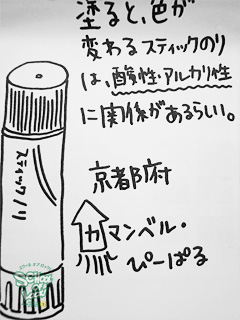 塗ると、色が
変わるスティックのり
は、酸性・アルカリ性
に関係があるらしい。
スティックノリ
京都府
カマンベル・
ぴーぱる